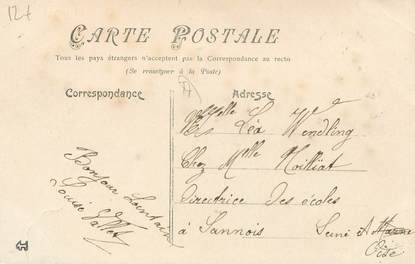 12+
CARTE POSTALE
Tous les pays étrangers n'acceptent pas la Correspondance au recto
(Se renseigner à la Poste)
Correspondance
Adresse
Bonjour Lointain
Louise
Melle Léa Wendling
Chez Melle Noilliat
Directrice des écoles
à Sannois Seine & Marne
Oise